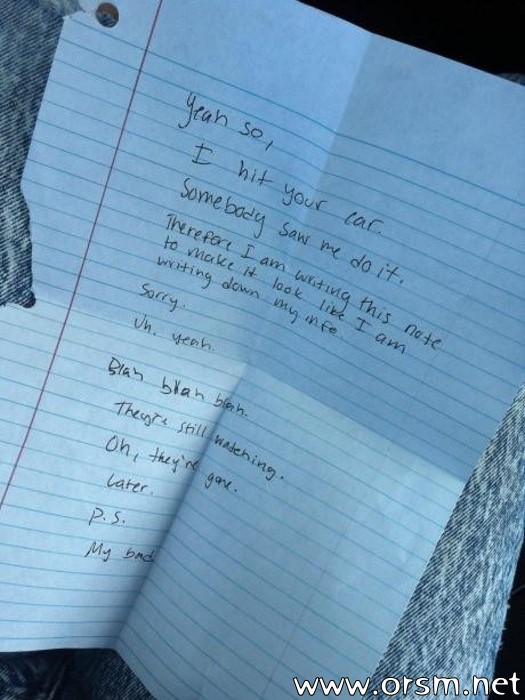 Yeah so,
I hit your car.
Somebody saw me do it.
Therefore I am writing this note
to make it look like I am
writing down my info.
Sorry.
Uh. yeah.
Blah blah blah.
They're still watching.
Oh, they're gone.
Later.
P.S.
My bad
www.orsm.net